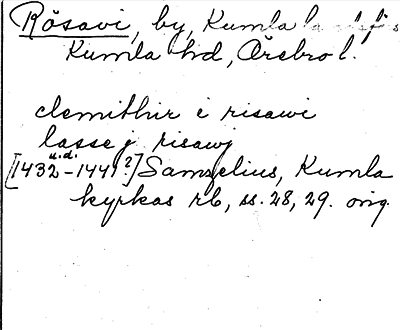 Rösavi, by, Kumla landsfs
Kumla hd, Örebro l.
clemithir i risawi
lasse j risawj
u.d.
[1432-1441?] Samzelius, Kumla
kyrkas rb, ss. 28, 29. orig.